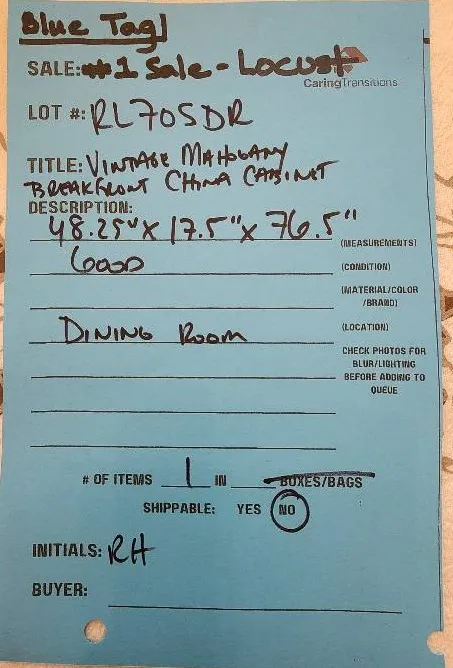 Blue Tag
SALE: #1 Sale - Locust
CaringTransitions
LOT #: RL705DR
TITLE: VINTAGE MAHOGANY
BREAKFRONT CHINA CABINET
DESCRIPTION:
48.25" X 17.5" X 76.5"
(MEASUREMENTS)
GOOD (CONDITION)
(MATERIAL/COLOR
/BRAND)
DINING ROOM (LOCATION)
CHECK PHOTOS FOR
BLUR/LIGHTING
BEFORE ADDING TO
QUEUE
# OF ITEMS 1 IN BOXES/BAGS
SHIPPABLE: YES NO
INITIALS: RH
BUYER: